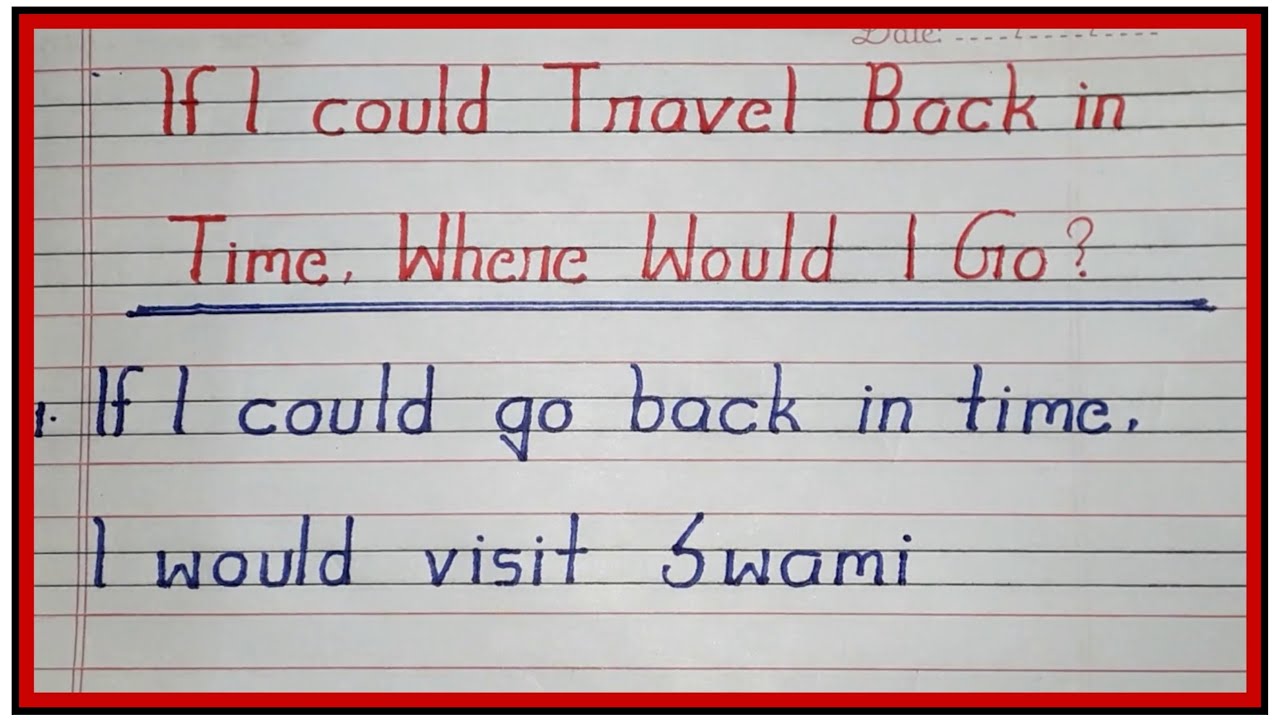 Date:
If I could Travel Back in
Time, Where Would I Go?
1. If I could go back in time,
I would visit Swami